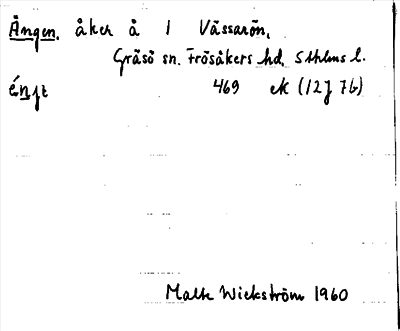 Ången. åker å 1 Vässarön,
Gräsö sn. Frösåkers hd, Sthlms l.
469 ek (12J 7b)
Malte Wickström 1960